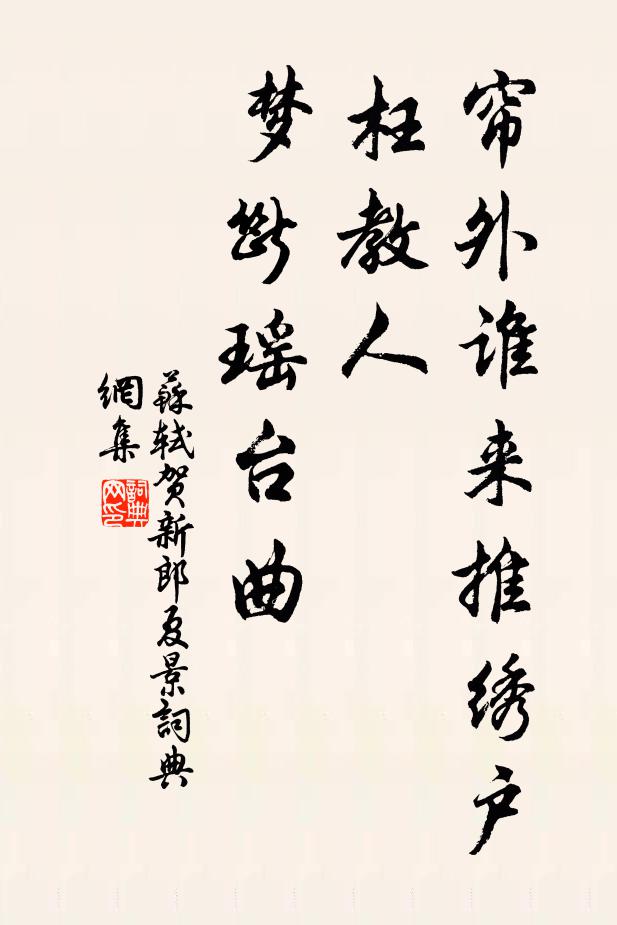 帘外谁来推绣户
枉教人
梦断瑶台曲
蘇轼贺新郎夏景詞典
網集
詞典
网印